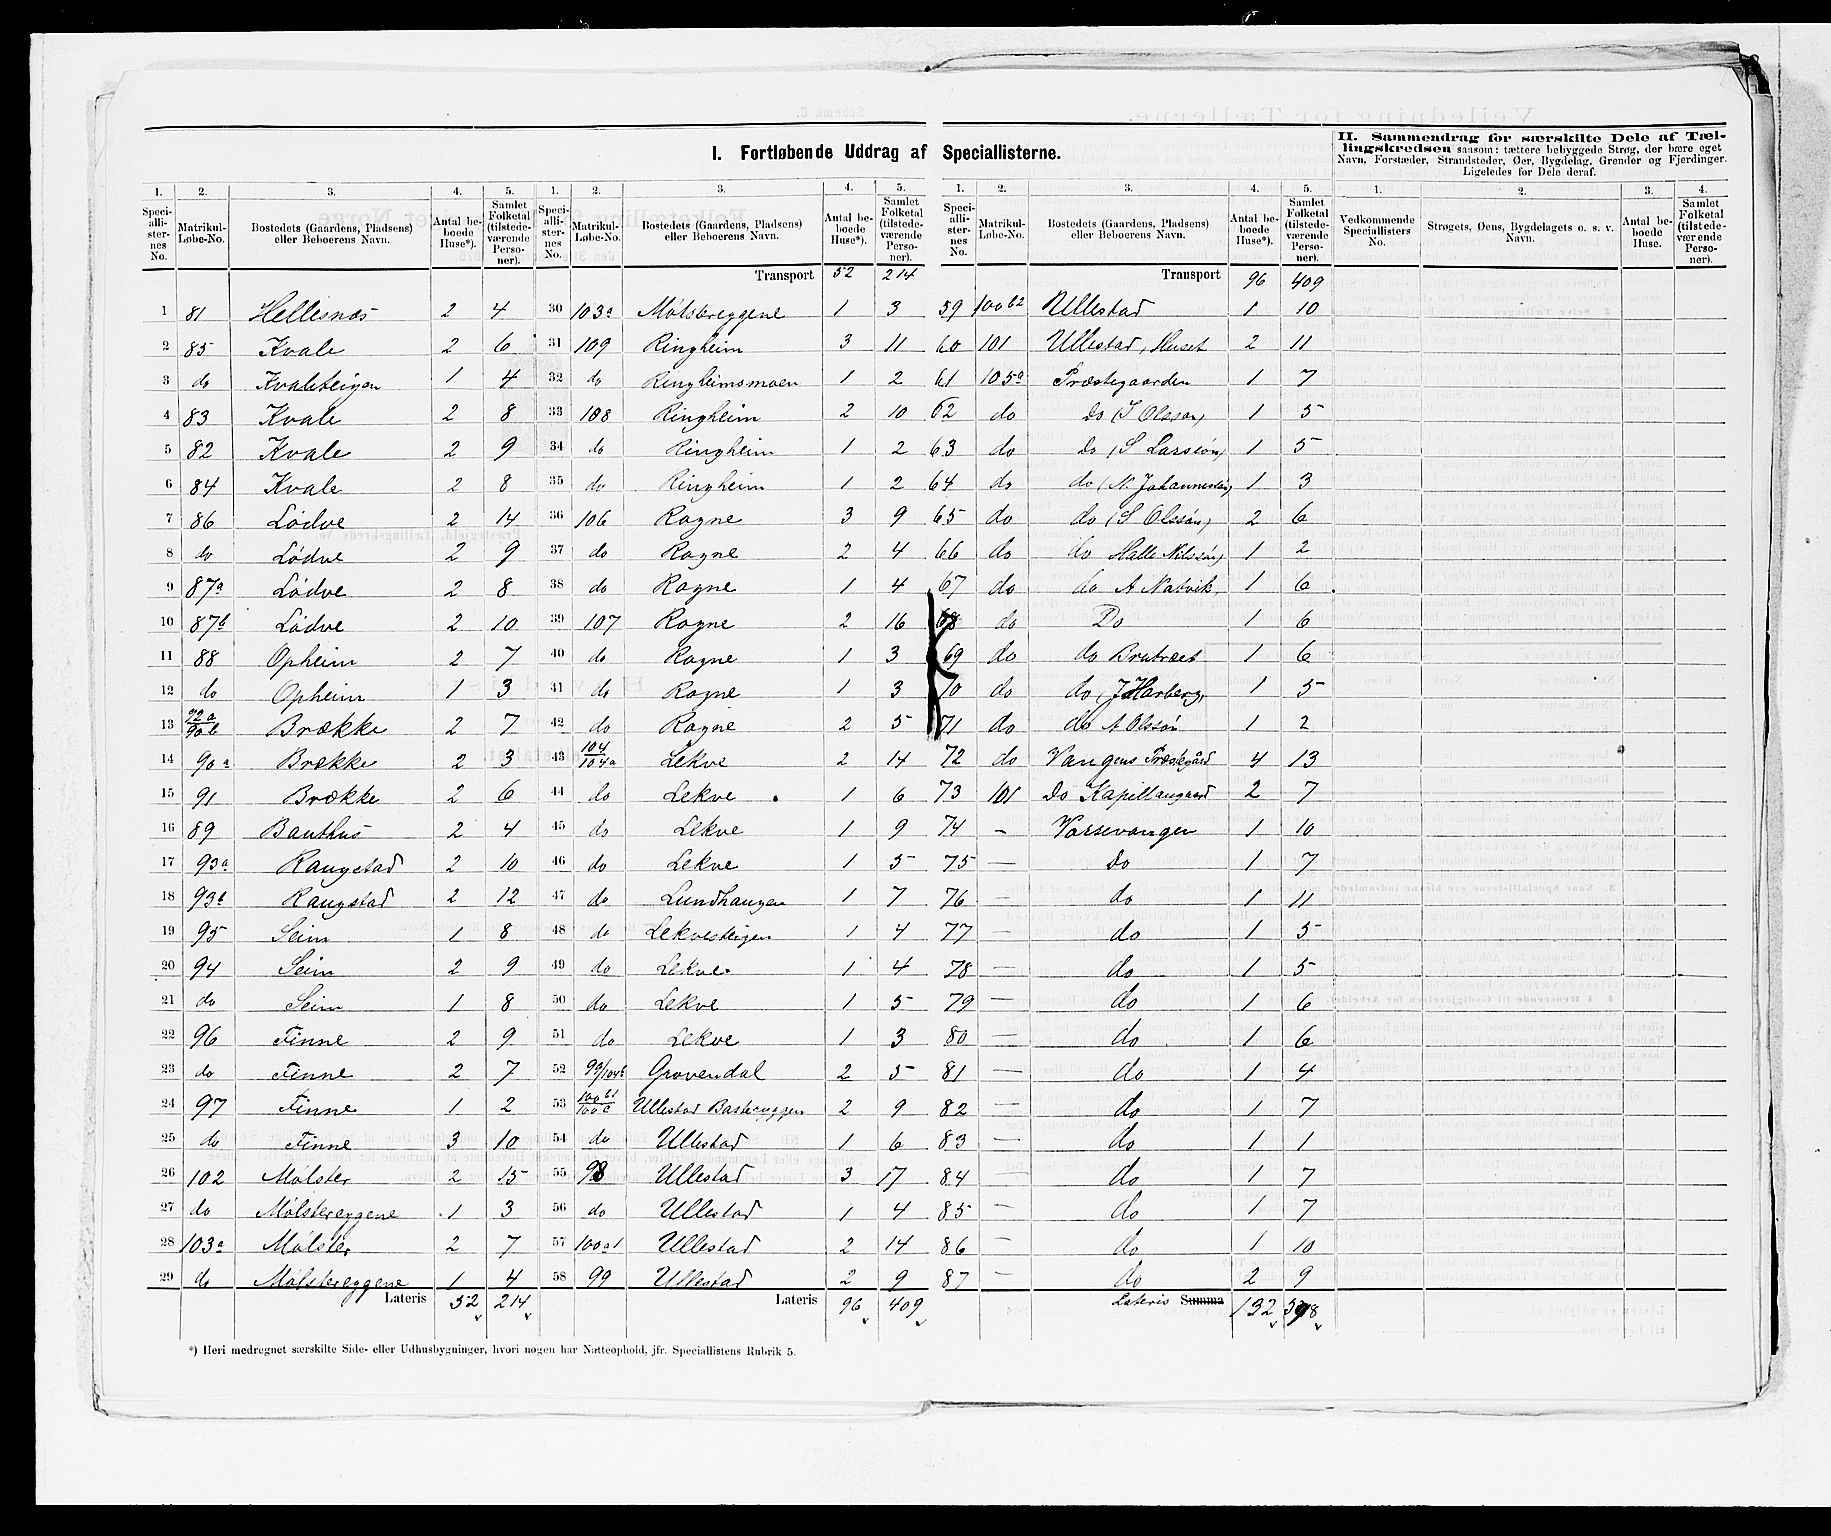 I. Fortløbende Uddrag af Speciallisterne.
II. Sammendrag for særskilte Dele af Tællingskredsen saasom: tættere bebyggede Strøg, der bære eget
Navn, Forstæder, Strandsteder, Øer, Bygdelag, Grender og Fjerdinger.
Ligeledes for Dele deraf.
1. 2. 3. 4. 5. 1. 2. 3. 4. 5. 1. 2. 3. 4. 5. 1. 2. 3. 4.
Speciallisternes No. Matrikul-Løbe-No. Bostedets (Gaardens, Pladsens) eller Beboerens Navn. Antal beboede Huse*). Samlet Folketal (tilstedeværende Personer).
Speciallisternes No. Matrikul-Løbe-No. Bostedets (Gaardens, Pladsens) eller Beboerens Navn. Antal beboede Huse*). Samlet Folketal (tilstedeværende Personer).
Speciallisternes No. Matrikul-Løbe-No. Bostedets (Gaardens, Pladsens) eller Beboerens Navn. Antal beboede Huse*). Samlet Folketal (tilstedeværende Personer).
Vedkommende Speciallisters No. Strøgets, Øens, Bygdelagets o. s. v. Navn. Antal beboede Huse. Samlet Folketal (tilstedeværende Personer).
Transport 52 214 Transport 96 409
1 81 Hellesnæs 2 4 30 103a Mølstereggene 1 3 59 100b2 Ullestad 1 10
2 85 Kvale 2 6 31 109 Ringheim 3 11 60 101 Ullestad, Huset 2 11
3 do Kvaleteigen 1 4 32 do Ringheimsmoen 1 2 61 105a Præstegaarden 1 7
4 83 Kvale 2 8 33 108 Ringheim 2 10 62 do Do (I Olsson) 1 5
5 82 Kvale 2 9 34 do Ringheim 1 2 63 do Do (S Larssøn) 1 5
6 84 Kvale 2 8 35 do Ringheim 1 2 64 do do (N. Johannessøn) 1 3
7 86 Lødve 2 14 36 106 Rogne 3 9 65 do do (S Olssøn) 2 6
8 do Lødve 2 9 37 do Rogne 2 4 66 do do Halle Nilssøn) 1 2
9 87a Lødve 2 8 38 do Rogne 1 4 67 do do A Natvik, 1 6
10 87b Lødve 2 10 39 107 Rogne 2 16 68 do Do 1 6
11 88 Opheim 2 7 40 do Rogne 1 3 69 do do Brutræet 1 6
12 do Opheim 1 3 41 do Rogne 1 3 70 do do (J Harberg, 1 5
13 92a/90b Brække 2 7 42 do Rogne 2 5 71 do do A Olssøn 1 2
14 90a Brække 2 3 43 104/104a Lekve 2 14 72 do Vangens Præstegård 4 13
15 91 Brække 2 6 44 do Lekve 1 6 73 101 Do Kapellangaard 2 7
16 89 Bauthus 2 4 45 do Lekve 1 9 74 – Vossevangen 1 10
17 93a Raugstad 2 10 46 do Lekve 1 5 75 – Do 1 7
18 93b Raugstad 2 12 47 do Lundhaugen 1 7 76 – do 1 11
19 95 Seim 1 8 48 do Lekvesteigen 1 4 77 – do 1 5
20 94 Seim 2 9 49 do Lekve 1 4 78 – do 1 5
21 do Seim 1 8 50 do Lekve 1 5 79 – do 1 6
22 96 Finne 2 9 51 do Lekve 1 3 80 – do 1 6
23 do Finne 2 7 52 99/104b Grovendal 2 5 81 – do 1 4
24 97 Finne 1 2 53 100b1/100c Ullestad 2 9 82 – do 1 7
25 do Finne 3 10 54 do Ullestad 1 6 83 – do 1 1
26 102 Mølster 2 15 55 98 Ullestad 3 17 84 – do 1 7
27 do Mølstereggene 1 3 56 do Ullestad 1 4 85 – do 1 7
28 103a Mølster 2 7 57 100a1 Ullestad 2 14 86 – do 1 10
29 do Mølstereggene 1 4 58 99 Ullestad 2 9 87 – do 2 9
Lateris 52 214 Lateris 96 409 Lateris Summa 132 598
*) Heri medregnet særskilte Side- eller Udhusbygninger, hvori nogen har Natteophold, jfr. Speciallistens Rubrik 5.